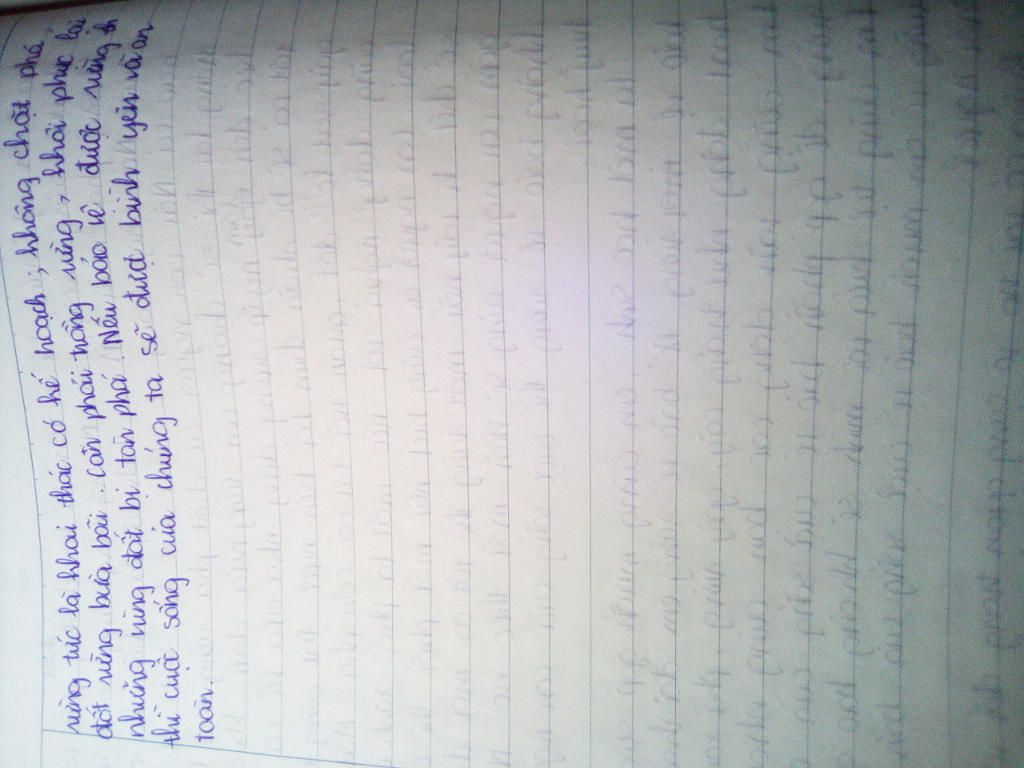 rừng tức là khai thác có kế hoạch, không chặt phá,
đốt rừng bừa bãi. Cần phải trồng rừng, khôi phục lại
những rừng đất bị tàn phá. Nếu bảo vệ được rừng th
thì cuộc sống của chúng ta sẽ được bình yên và an
toàn.